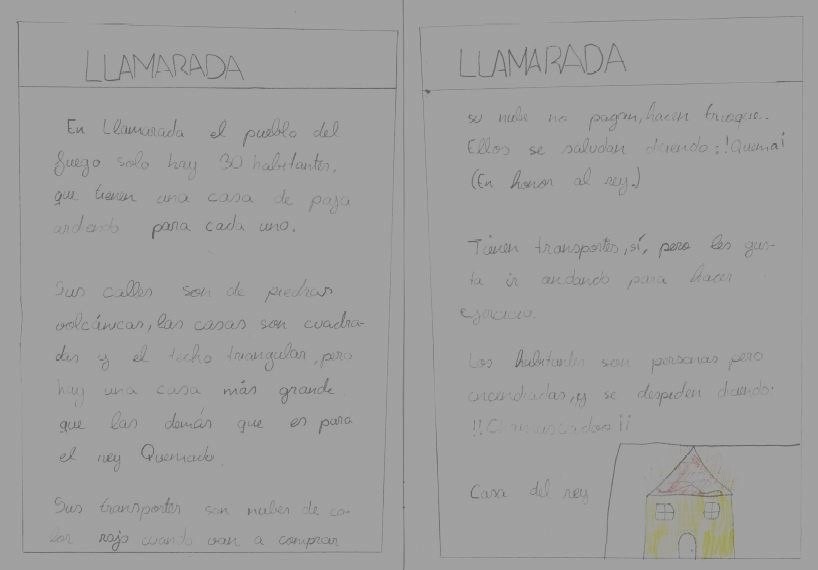 LLAMARADA
En Llamarada el pueblo del
fuego solo hay 30 habitantes,
que tienen una casa de paja
ardendo para cada uno.
Sus calles son de piedras
volcánicas, las casas son cuadra-
das y el techo triangular, pero
hay una casa más grande
que las demás que es para
el rey Quemado.
Sus transportes son nubes de co-
lor rojo cuando van a comprar
LLAMARADA
su nube no pagan, hacen trueque..
Ellos se saludan diciendo: ¡Quema!
(En honor al rey.)
Tienen transportes, sí, pero les gus-
ta ir andando para hacer
ejercicio.
Los habitantes son personas pero
encendiadas, y se despiden diciendo:
Casa del rey